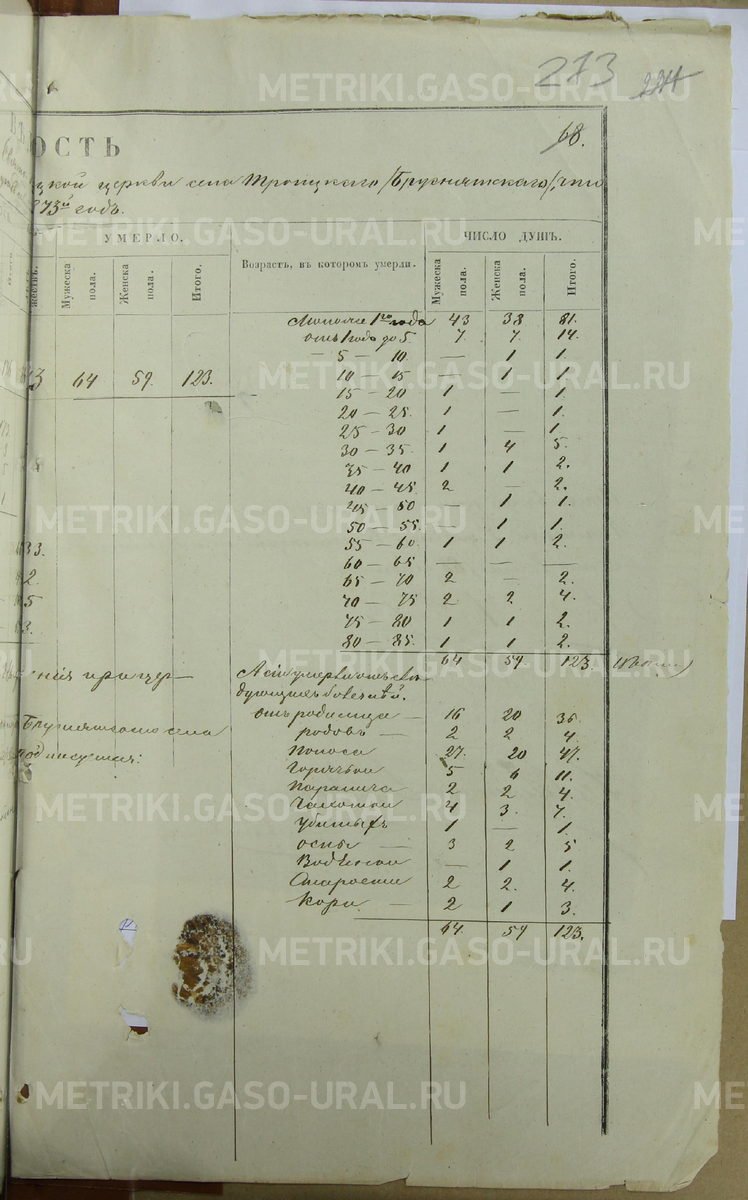 273 224
68.
ОСТЬ
цкой церкви села Троицкаго /Бруснятскаго/, что
873й годъ.
УМЕРЛО.
ЧИСЛО ДУШЪ.
Мужеска пола.
Женска пола.
Итого.
Возрастъ, въ которомъ умерли.
Мужеска пола.
Женска пола.
Итого.
Моложе 1го года 43 38 81.
отъ 1 года до 5. 7. 7. 14.
— 5 — 10. — 1 1.
3 64 59. 123.
10 — 15 — 1 1.
15 — 20 1 — 1.
20 — 25. 1 — 1.
25 — 30 1 — 1.
30 — 35. 1 4 5.
35 — 40 1 1 2.
40 — 45. 2 — 2.
45 — 50 — 1 1.
50 — 55. — 1 1.
33.
55 — 60. 1 1 2.
60 — 65 — — —
2.
65 — 70 2 — 2.
5
70 — 75 2 2 4.
75 — 80 1 1 2.
3.
80 — 85. 1 1 2.
64 59. 123.
А сіи умерли отъ слѣ
дующихъ болезней.
отъ родимца — 16 20 36.
Бруснятскаго села
родовъ — 2 2 4.
поноса 27. 20 47.
подписуемся:
Горячьки 5 6 11.
Паралича 2 2 4.
Чахотки 4 3. 7.
Убитыхъ 1 — 1.
оспы — 3 2 5
Водяной — 1 1.
Старости 2 2. 4.
Кори — 2 1 3.
64. 59 123.
METRIKI.GASO-URAL.RU